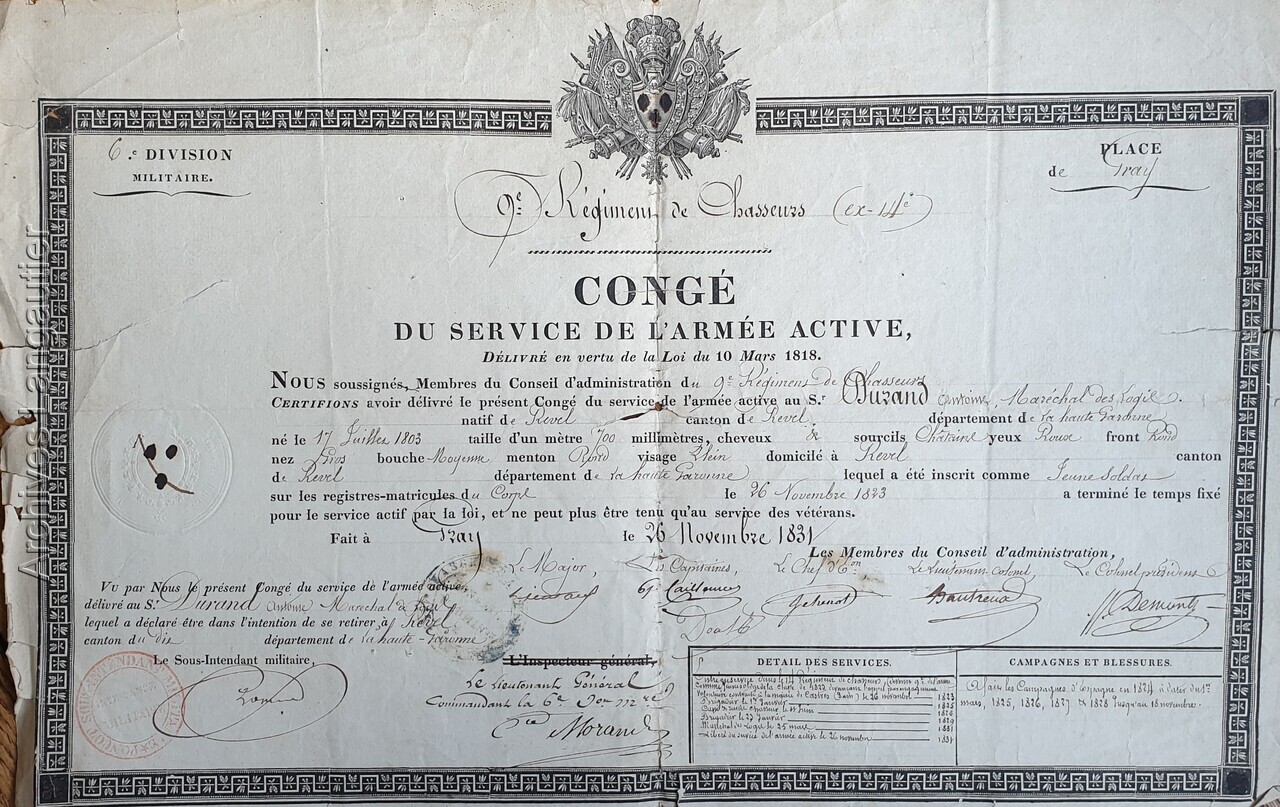 6.e DIVISION
MILITAIRE.
PLACE
de Gray
9e Régiment de Chasseurs (ex-14e)
CONGÉ
DU SERVICE DE L'ARMÉE ACTIVE,
DÉLIVRÉ en vertu de la Loi du 10 Mars 1818.
NOUS soussignés, Membres du Conseil d'administration du 9e Régiment de Chasseurs
CERTIFIONS avoir délivré le présent Congé du service de l'armée active au S.r Durand Antoine, Maréchal des Logis.
natif de Revel canton de Revel, département de la haute Garonne
né le 17 Juillet 1803 taille d'un mètre 700 millimètres, cheveux & sourcils Chatains yeux Roux front Rond
nez Gros bouche Moyenne menton Rond visage Plein domicilé à Revel canton
de Revel département de la haute Garonne lequel a été inscrit comme Jeune Soldat
sur les registres-matricules du Corps le 26 Novembre 1823 a terminé le temps fixé
pour le service actif par la loi, et ne peut plus être tenu qu'au service des vétérans.
Fait à Gray le 26 Novembre 1831
Les Membres du Conseil d'administration,
Le Major, Les Capitaines, Le Chef d'Eon, Le Lieutenant Colonel, Le Colonel président
VU par Nous le présent Congé du service de l'armée active,
délivré au S.r Durand Antoine Maréchal de Logis
lequel a déclaré être dans l'intention de se retirer à Revel
canton du dit département de la haute-Garonne
Le Sous-Intendant militaire,
L'Inspecteur général,
Le Lieutenant Général
Commandant la 6e Don mre
Cte Morand
DETAIL DES SERVICES.
Brigadier le 1er Janvier 1825
Brigadier le 27 Janvier 1829
Maréchal des Logis le 25 mars 1831
Libéré du service de l'armée active le 26 novembre 1831
CAMPAGNES ET BLESSURES.
A fait les Campagnes d'Espagne en 1824 à dater du 1er
mars, 1825, 1826, 1827 & 1828 Jusqu'au 18 novembre.
Archives Langautier